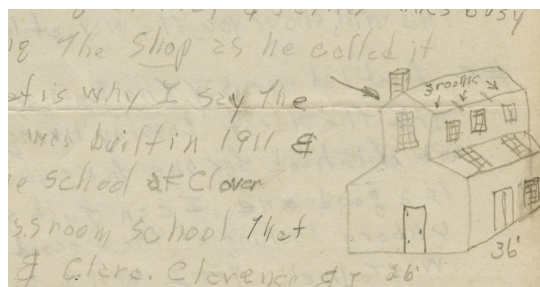 busy
The Shop as he called it
is why I say The
was built in 1911 &
school at Clover
ssroom school That
& Clara. Clarence & I
3 rooms
26'
36'